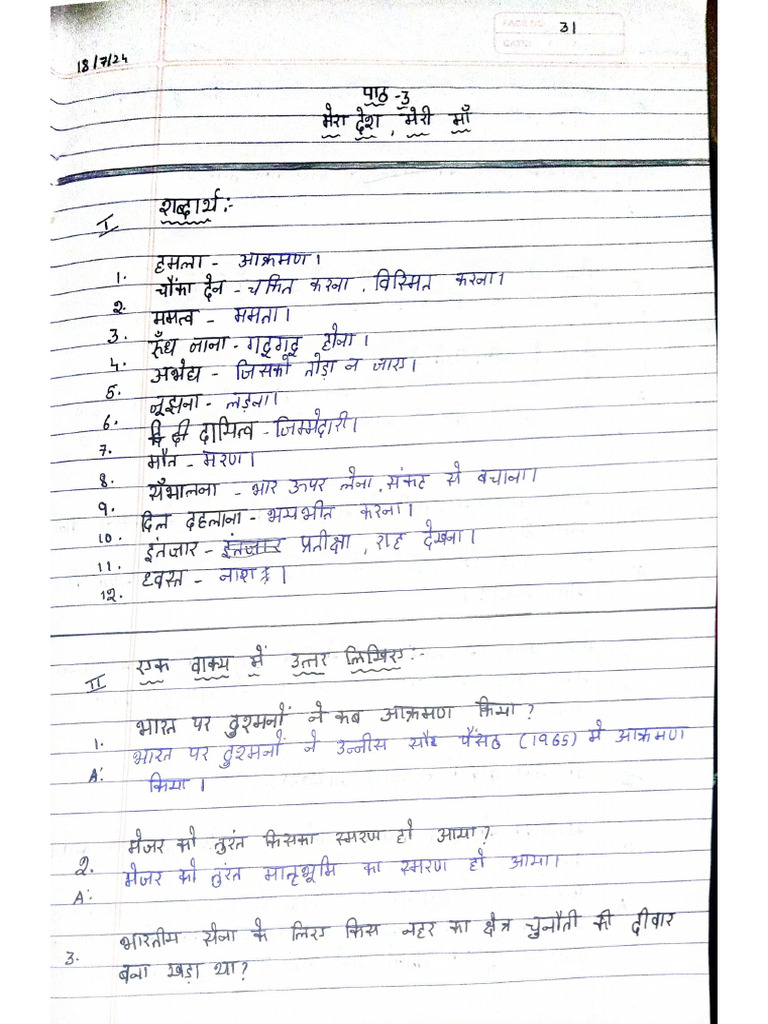 31
18/7/24
पाठ -3
मेरा देश, मेरी माँ
I शब्दार्थ :-
1. हमला - आक्रमण।
2. चौंका देन - चकित करना, विस्मित करना।
3. ममत्व - ममता।
4. रुँध जाना - गद्गद् होना।
5. अभेद्य - जिसको तोड़ा न जाए।
6. जूझना - लड़ना।
7. दायित्व - जिम्मेदारी।
8. मौत - मरण।
9. सँभालना - भार ऊपर लेना, संकट से बचाना।
10. दिल दहलाना - भयभीत करना।
11. इंतजार - इंतजार प्रतीक्षा, राह देखना।
12. ध्वस्त - नाश।
II एक वाक्य में उत्तर लिखिए :-
1. भारत पर दुश्मनों ने कब आक्रमण किया?
A: भारत पर दुश्मनों ने उन्नीस सौ पैंसठ (1965) में आक्रमण
किया।
2. मेजर को तुरंत किसका स्मरण हो आया?
A: मेजर को तुरंत मातृभूमि का स्मरण हो आया।
3. भारतीय सेना के लिए किस नहर का क्षेत्र चुनौती की दीवार
बना खड़ा था?